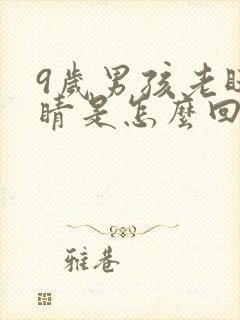 9歲男孩老眨
睛是怎麼回
雅巷